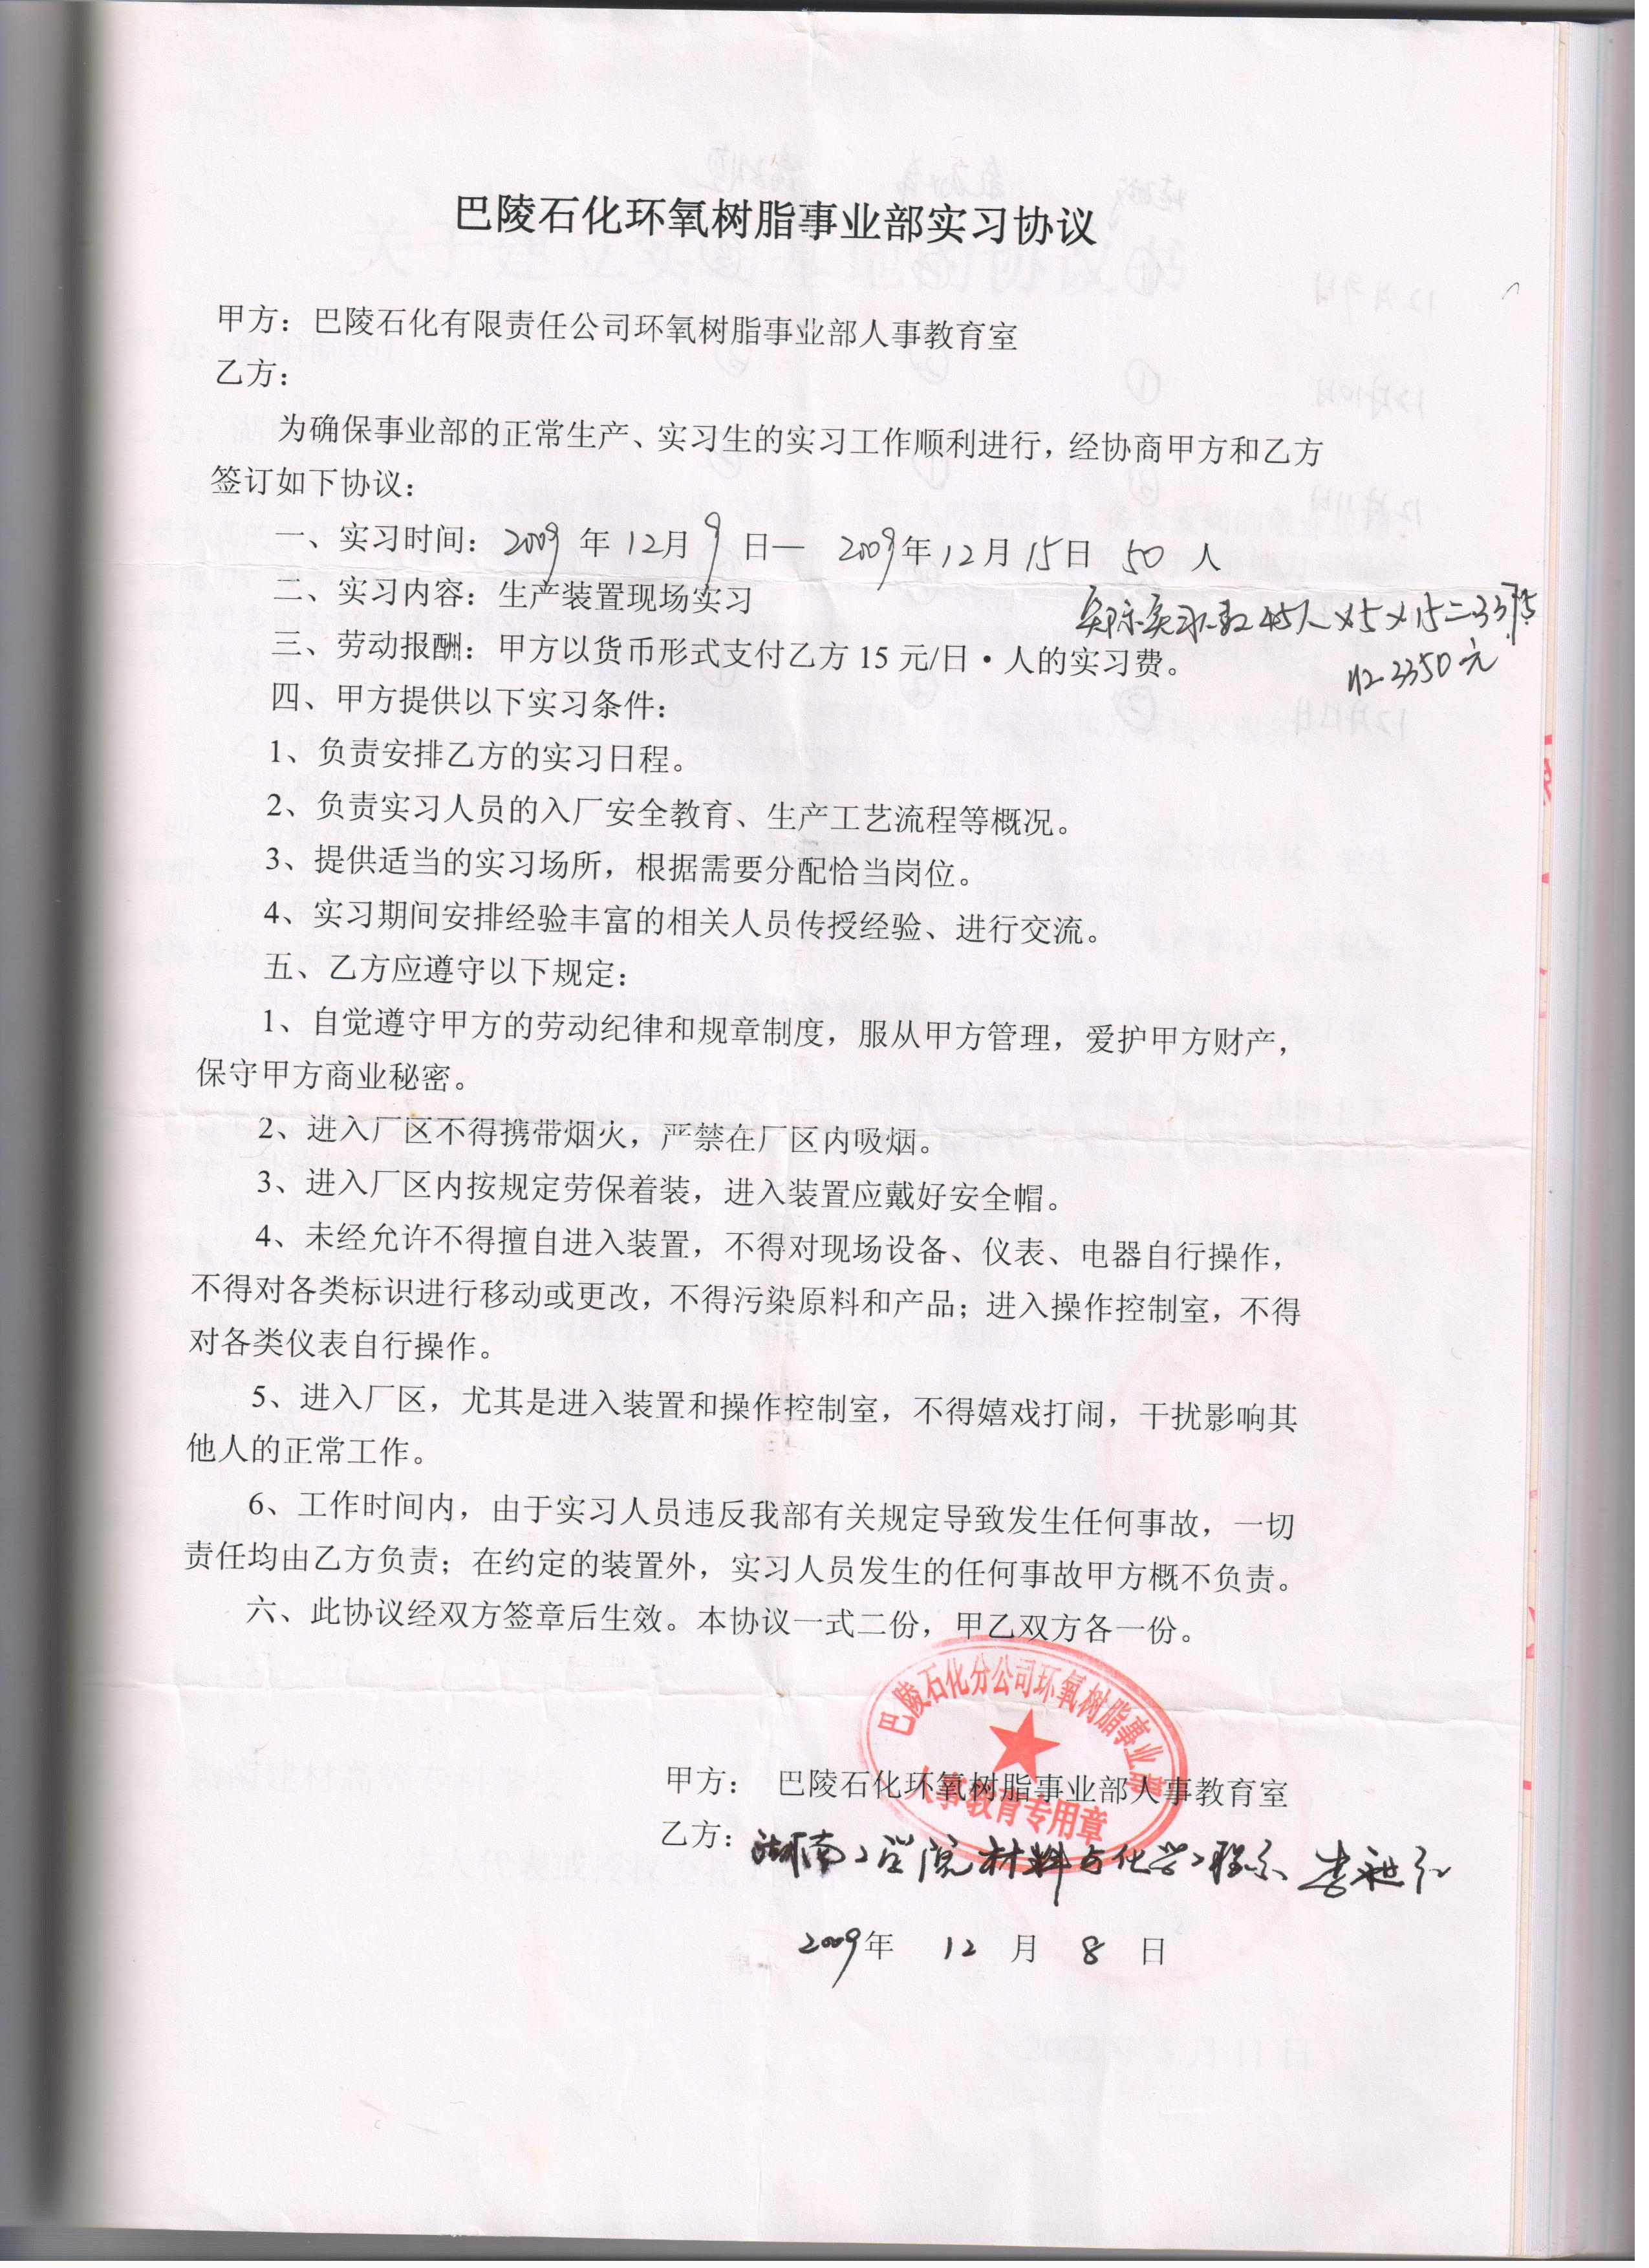 巴陵石化环氧树脂事业部实习协议
甲方：巴陵石化有限责任公司环氧树脂事业部人事教育室
乙方：
为确保事业部的正常生产、实习生的实习工作顺利进行，经协商甲方和乙方
签订如下协议：
一、实习时间：2009年12月9日—2009年12月15日 50人
二、实习内容：生产装置现场实习
实际实习 45人×5×15=3375
三、劳动报酬：甲方以货币形式支付乙方15元/日·人的实习费。
收3350元
四、甲方提供以下实习条件：
1、负责安排乙方的实习日程。
2、负责实习人员的入厂安全教育、生产工艺流程等概况。
3、提供适当的实习场所，根据需要分配恰当岗位。
4、实习期间安排经验丰富的相关人员传授经验、进行交流。
五、乙方应遵守以下规定：
1、自觉遵守甲方的劳动纪律和规章制度，服从甲方管理，爱护甲方财产，
保守甲方商业秘密。
2、进入厂区不得携带烟火，严禁在厂区内吸烟。
3、进入厂区内按规定劳保着装，进入装置应戴好安全帽。
4、未经允许不得擅自进入装置，不得对现场设备、仪表、电器自行操作，
不得对各类标识进行移动或更改，不得污染原料和产品；进入操作控制室，不得
对各类仪表自行操作。
5、进入厂区，尤其是进入装置和操作控制室，不得嬉戏打闹，干扰影响其
他人的正常工作。
6、工作时间内，由于实习人员违反我部有关规定导致发生任何事故，一切
责任均由乙方负责；在约定的装置外，实习人员发生的任何事故甲方概不负责。
六、此协议经双方签章后生效。本协议一式二份，甲乙双方各一份。
巴陵石化分公司环氧树脂事业部
甲方： 巴陵石化环氧树脂事业部人事教育室
人事教育专用章
乙方：湖南工学院材料与化学工程系 李
2009年 12 月 8 日